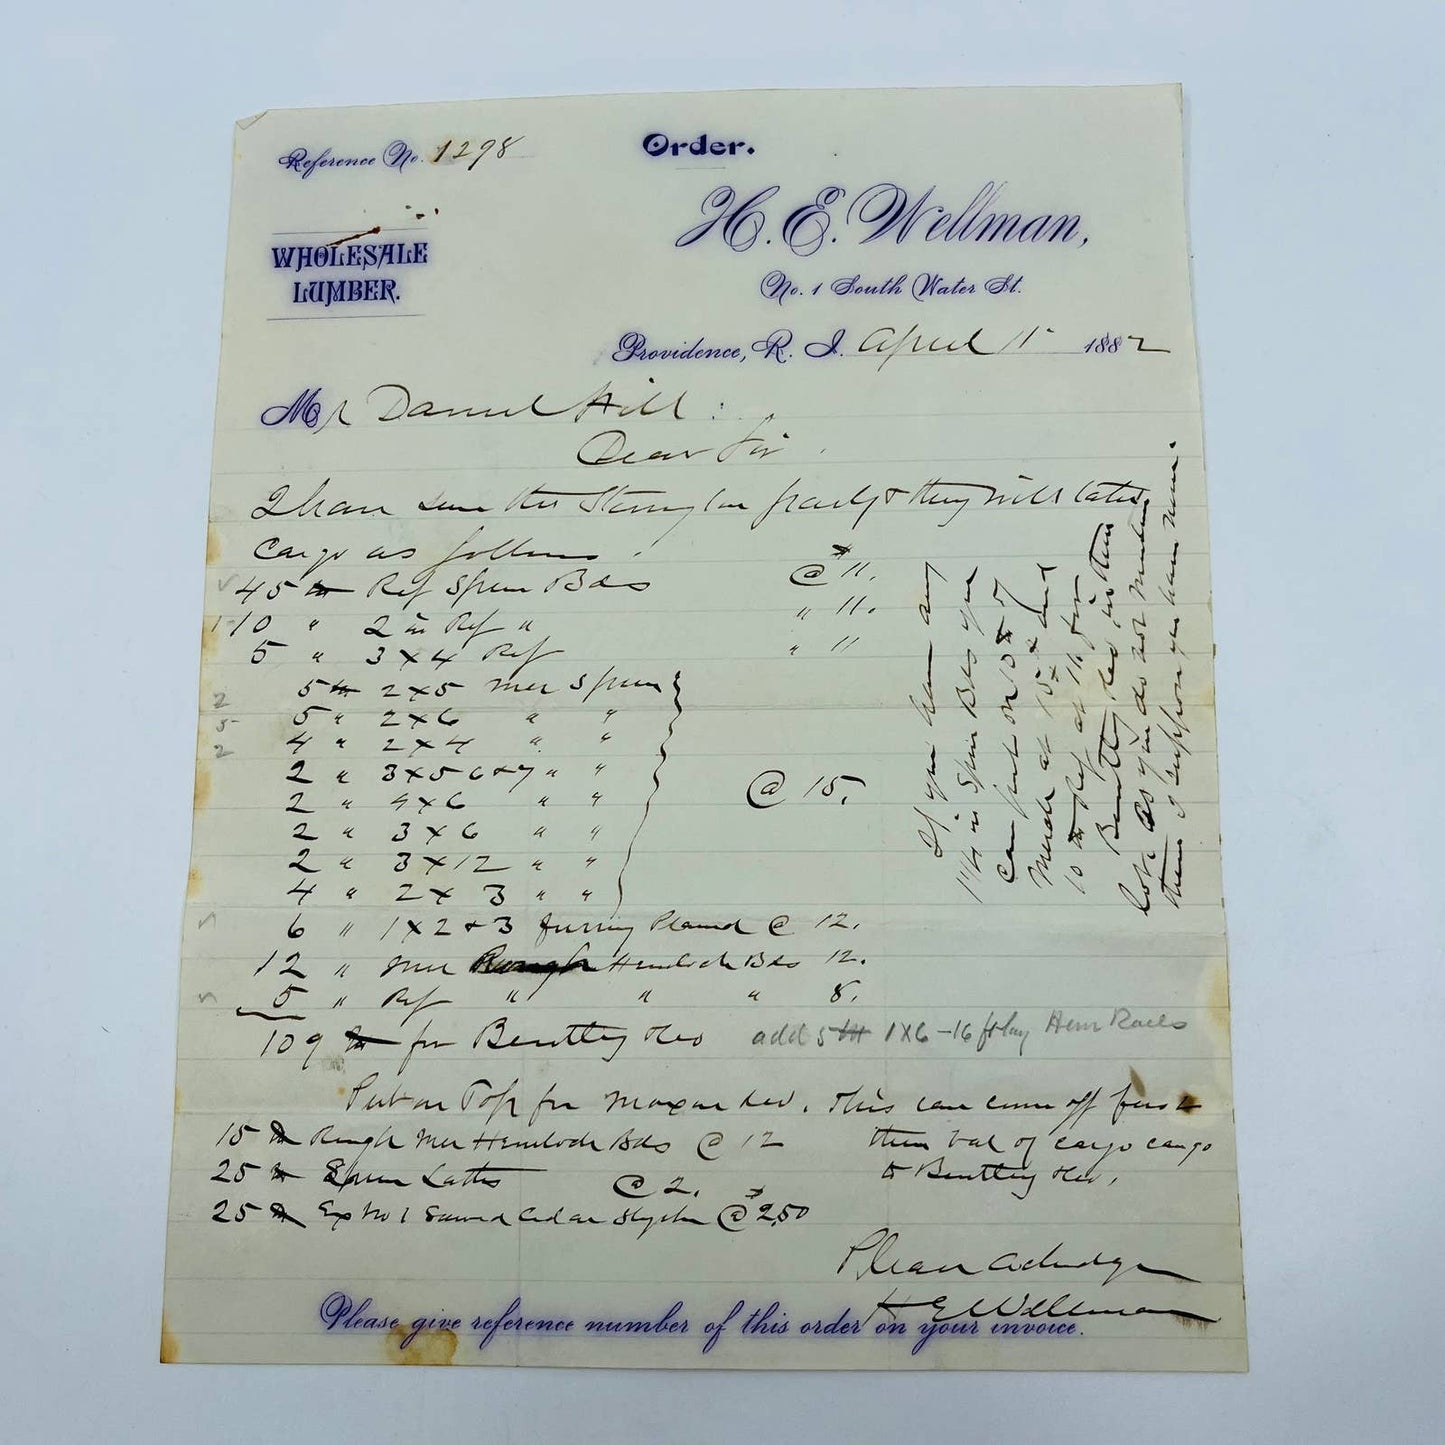 Reference No. 1298
Order.
H. E. Wellman,
WHOLESALE
LUMBER.
No. 1 South Water St.
Providence, R. I. April 15 1882
Mr Daniel Hill :
Dear Sir
I have seen the Stonington party & they will take
cargo as follows.
45 m Ref Spruce Bds @ $11.
10 " 2 in Ref " " 11.
5 " 3 x 4 Ref " 11
2
5 m 2 x 5 mer Spruce
5
5 " 2 x 6 " "
2
4 " 2 x 4 " "
2 " 3 x 5 6 & 7 " "
2 " 4 x 6 " " @ 15.
2 " 3 x 6 " "
2 " 3 x 12 " "
4 " 2 x 3 " "
6 " 1 x 2 & 3 furring Planed @ 12.
12 " mer Hemlock Bds 12.
5 " Ref " " " 8.
109 m for Bentley & Co add 5 m 1 x 6 - 16 ft long Hem Rails
Put on Top for & Co. This can come off first
15 m Rough Mer Hemlock Bds @ 12 then bal of cargo cargo
25 m Spruce Laths @ 2. to Bentley & Co.
25 m Ex No 1 Sawed Cedar @ $2.50
Please acknowledge
H E Wellman
Please give reference number of this order on your invoice.
If you have any
1 1/4 in Spruce Bds you
can put on 10 m of
Merch at 15 and
10 m Ref at 11 for
Bentley & Co in their
lot. As you do not mention
them I suppose you have none.